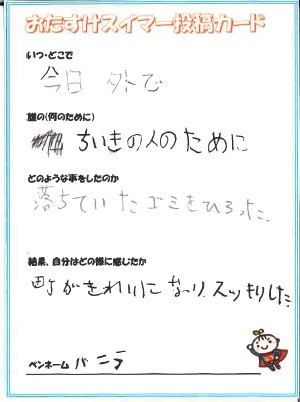 おたすけスイマー投稿カード
いつ・どこで
今日 外で
誰の(何のために)
ちいきの人のために
どのような事をしたのか
落ちていたゴミをひろった。
結果、自分はどの様に感じたか
町がきれいになり、スッキリした
ペンネーム バニラ